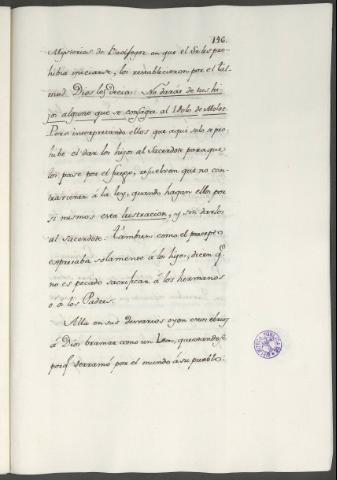 146.
Mysterios de Beelfegor en que el Señor pro-
hibia iniciarse, los restablecieron por el Tal-
mud. Dios les decia: No darás de tus hi-
jos alguno que se consagre al Idolo de Moloc.
Pero interpretando ellos que aqui solo se pro-
hibe el dar los hijos al Sacerdote para que
los pase por el fuego, resuelven que no con-
travienen á la ley, quando hagan ellos por
si mismos esta lustracion, y sin darlos
al sacerdote. Tambien como el precepto
expresaba solamente á los hijos, dicen q.
no es pecado sacrificar á los hermanos
o á los Padres.
Alla en sus desvarios oyen estos
á Dios bramar como un Leon, quexandose
porq. derramó por el mundo á su pueblo.